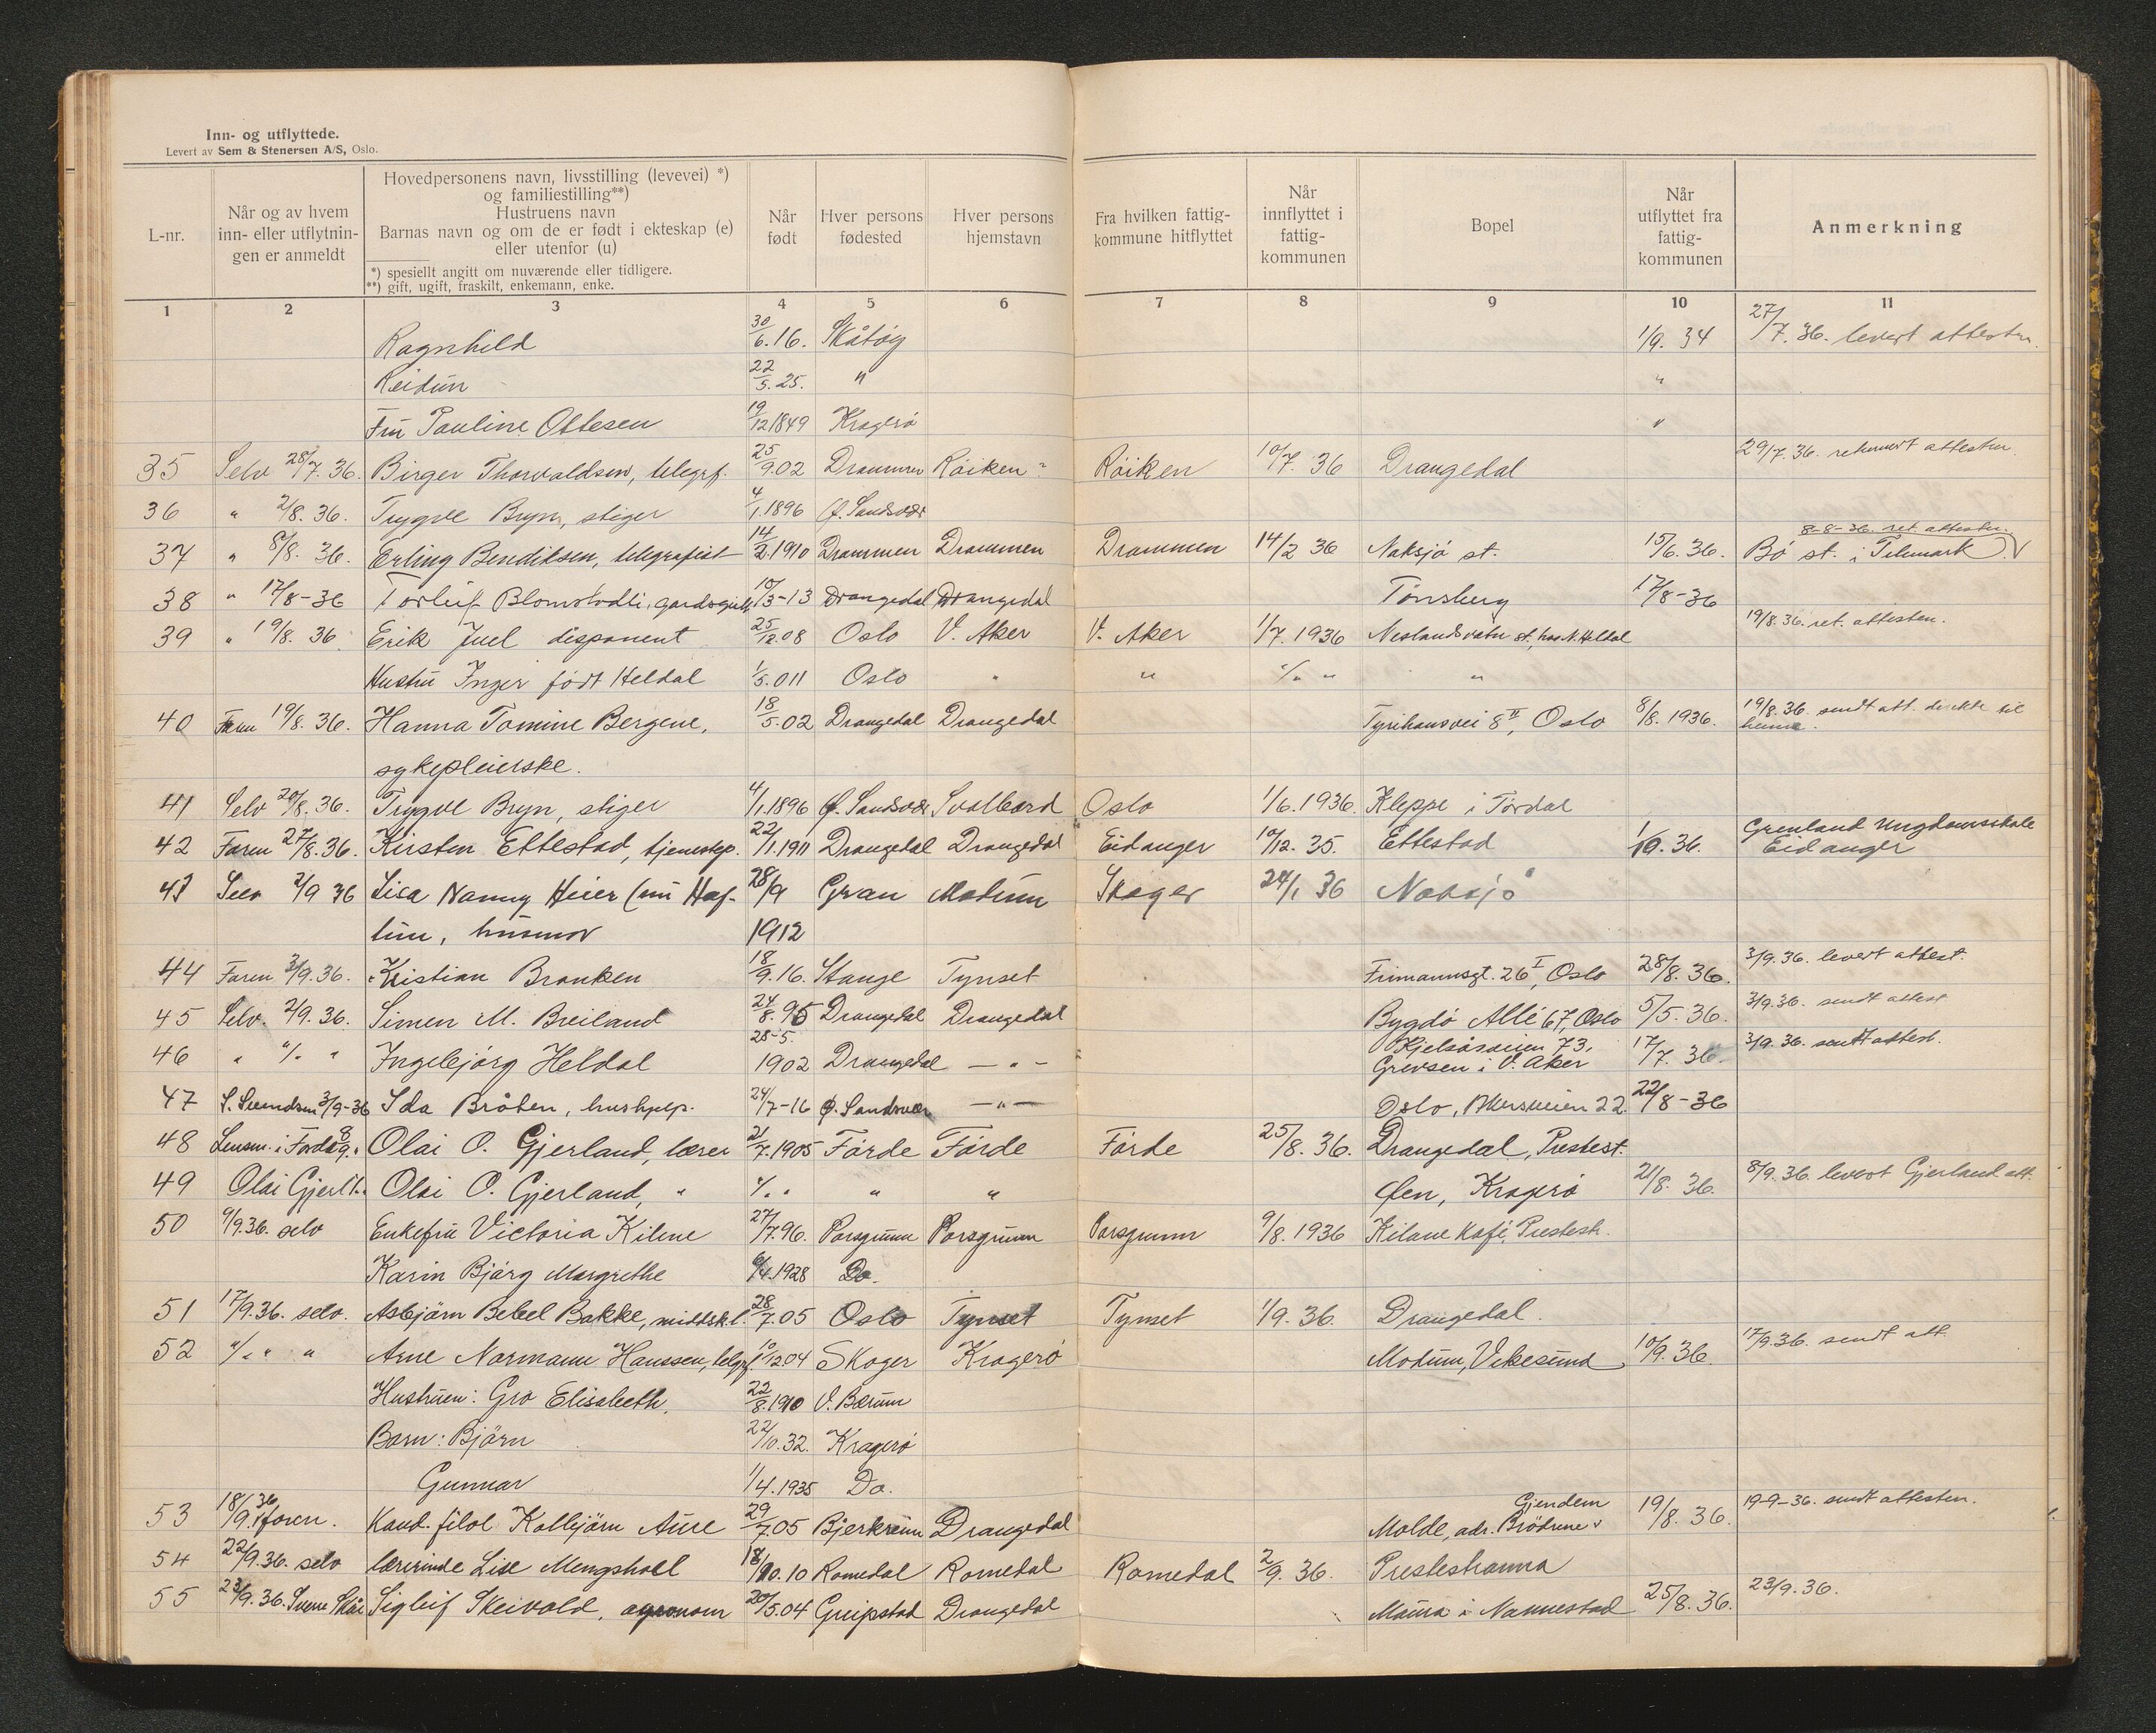 Inn- og utflyttede.
Levert av Sem & Stenersen A/S, Oslo.
L-nr.
Når og av hvem
inn- eller utflytnin-
gen er anmeldt
Hovedpersonens navn, livsstilling (levevei) *)
og familiestilling**)
Hustruens navn
Barnas navn og om de er født i ekteskap (e)
eller utenfor (u)
*) spesiellt angitt om nuværende eller tidligere.
**) gift, ugift, fraskilt, enkemann, enke.
Når
født
Hver persons
fødested
Hver persons
hjemstavn
Fra hvilken fattig-
kommune hitflyttet
Når
innflyttet i
fattig-
kommunen
Bopel
Når
utflyttet fra
fattig-
kommunen
Anmerkning
1 2 3 4 5 6 7 8 9 10 11
Ragnhild 30/6.16. Skåtøy 1/9. 34 27/7.36. levert attesten.
Reidun 22/5.25. " "
Fru Pauline Ottesen 19/12 1849 Kragerø "
35 Selv 28/7.36. Birger Thorvaldsen, telegrf. 25/9.02 Drammen Røiken Røiken 10/7. 36 Drangedal 29/7.36. returnert attesten
36 " 2/8.36. Trygve Bryn, stiger 4/1.1896 Ø. Sandsvær
37 " 8/8. 36. Erling Bendiksen, telegrafist 14/2.1910 Drammen Drammen Drammen 14/2 36 Naksjø st. 15/6.36. 8-8-36. ret. attesten. Bø st. i Telemark
38 " 17/8-36 Torleif Blomstvedli, gardsgutt 10/3-13 Drangedal Drangedal Tønsberg 17/8-36
39 " 19/8. 36. Erik Juel disponent 25/12.08 Oslo V. Aker V. Aker 1/7.1936 Neslandsvatn st., hos N. Heldal 19/8.36. ret. attesten.
Hustru Inger født Heldal 1/5.011 Oslo " " "/" " "
40 Faren 19/8.36. Hanna Tomine Bergene, 18/5.02 Drangedal Drangedal Tyrihansvei 8 II, Oslo 8/8.1936. 19/8.36. sendt att. direkte til
henne.
sykepleierske.
41 Selv 20/8.36. Trygve Bryn, stiger 4/1.1896 Ø. Sandsvær Svalbard Oslo 1/6.1936. Kleppe i Tørdal
42 Faren 27/8.36. Kirsten Ettestad, tjenestep. 22/1.1911 Drangedal Drangedal Eidanger 10/12. 35. Ettestad 1/10.36. Grenland Ungdomsskole
Eidanger
43 Selv 2/9 36 Lisa Nanny Heier (nu Haf- 28/9 Gran Modum Skoger 24/1 36 Naksjø
tun, husmor 1912
44 Faren 3/9.36. Kristian Branken 18/9.16. Stange Tynset Frimannsgt. 26 I, Oslo 28/8. 36. 3/9.36. levert attest.
45 Selv. 2/9.36. Simen M. Breiland 24/8.95 Drangedal Drangedal Bygdø Allé 67, Oslo 5/5.36. 3/9.36. sendt attest
46 " "/" " Ingebjørg Heldal 28-5. 1902 Drangedal — " — Kjelsåsveien 73,
Grevsen i V. Aker 17/7. 36. 3/9.36. sendt attest.
47 S. Svendsen 3/9-36 Ida Bråten, hushjelp. 24/7-16 Ø. Sandsvær — " — Oslo, Akersveien 22. 22/8-36
48 Lensm. i Førde 8/9. Olai O. Gjerland, lærer 21/7.1905 Førde Førde Førde 25/8.36. Drangedal, Prestest.
49 Olai Gjerl. Olai O. Gjerland, " "/" " " " Øen, Kragerø 21/8. 36. 8/9.36. levert Gjerland att.
50 9/9.36. selv Enkefru Victoria Kilene 27/7.96. Porsgrunn Porsgrunn Porsgrunn 9/8.1936 Kilane Kafé, Prestestr.
Karin Bjørg Margrethe 6/4.1928 Do.
51 17/9.36. selv. Asbjørn Bebel Bakke, middsk.l. 28/7.05 Oslo Tynset Tynset 1/9. 36. Drangedal.
52 "/" " " Arne Normann Hanssen, telgrf. 10/12 04 Skoger Kragerø Modum, Vikesund 10/9. 36. 17/9.36. sendt att.
Hustruen: Gro Elisabeth 22/8.1910 V. Bærum
Barn: Bjørn 22/10.32. Kragerø
Gunnar 1/4.1935 Do.
53 18/9.36 foren. Kand. filol Kolbjørn Aure 29/7.05 Bjerkreim Drangedal Molde, adr. Brødrene Gjendem 19/8. 36. 19-9-36. sendt attesten.
54 22/9.36. selv lærerinde Lise Mengshoel 18/10.10 Romedal Romedal Romedal 2/9. 36. Prestestranna
55 23/9.36. Sverre Skåli Sigleif Skeivold, agronom 20/5.04 Greipstad Drangedal Maura i Nannestad 25/8.36. 23/9.36.